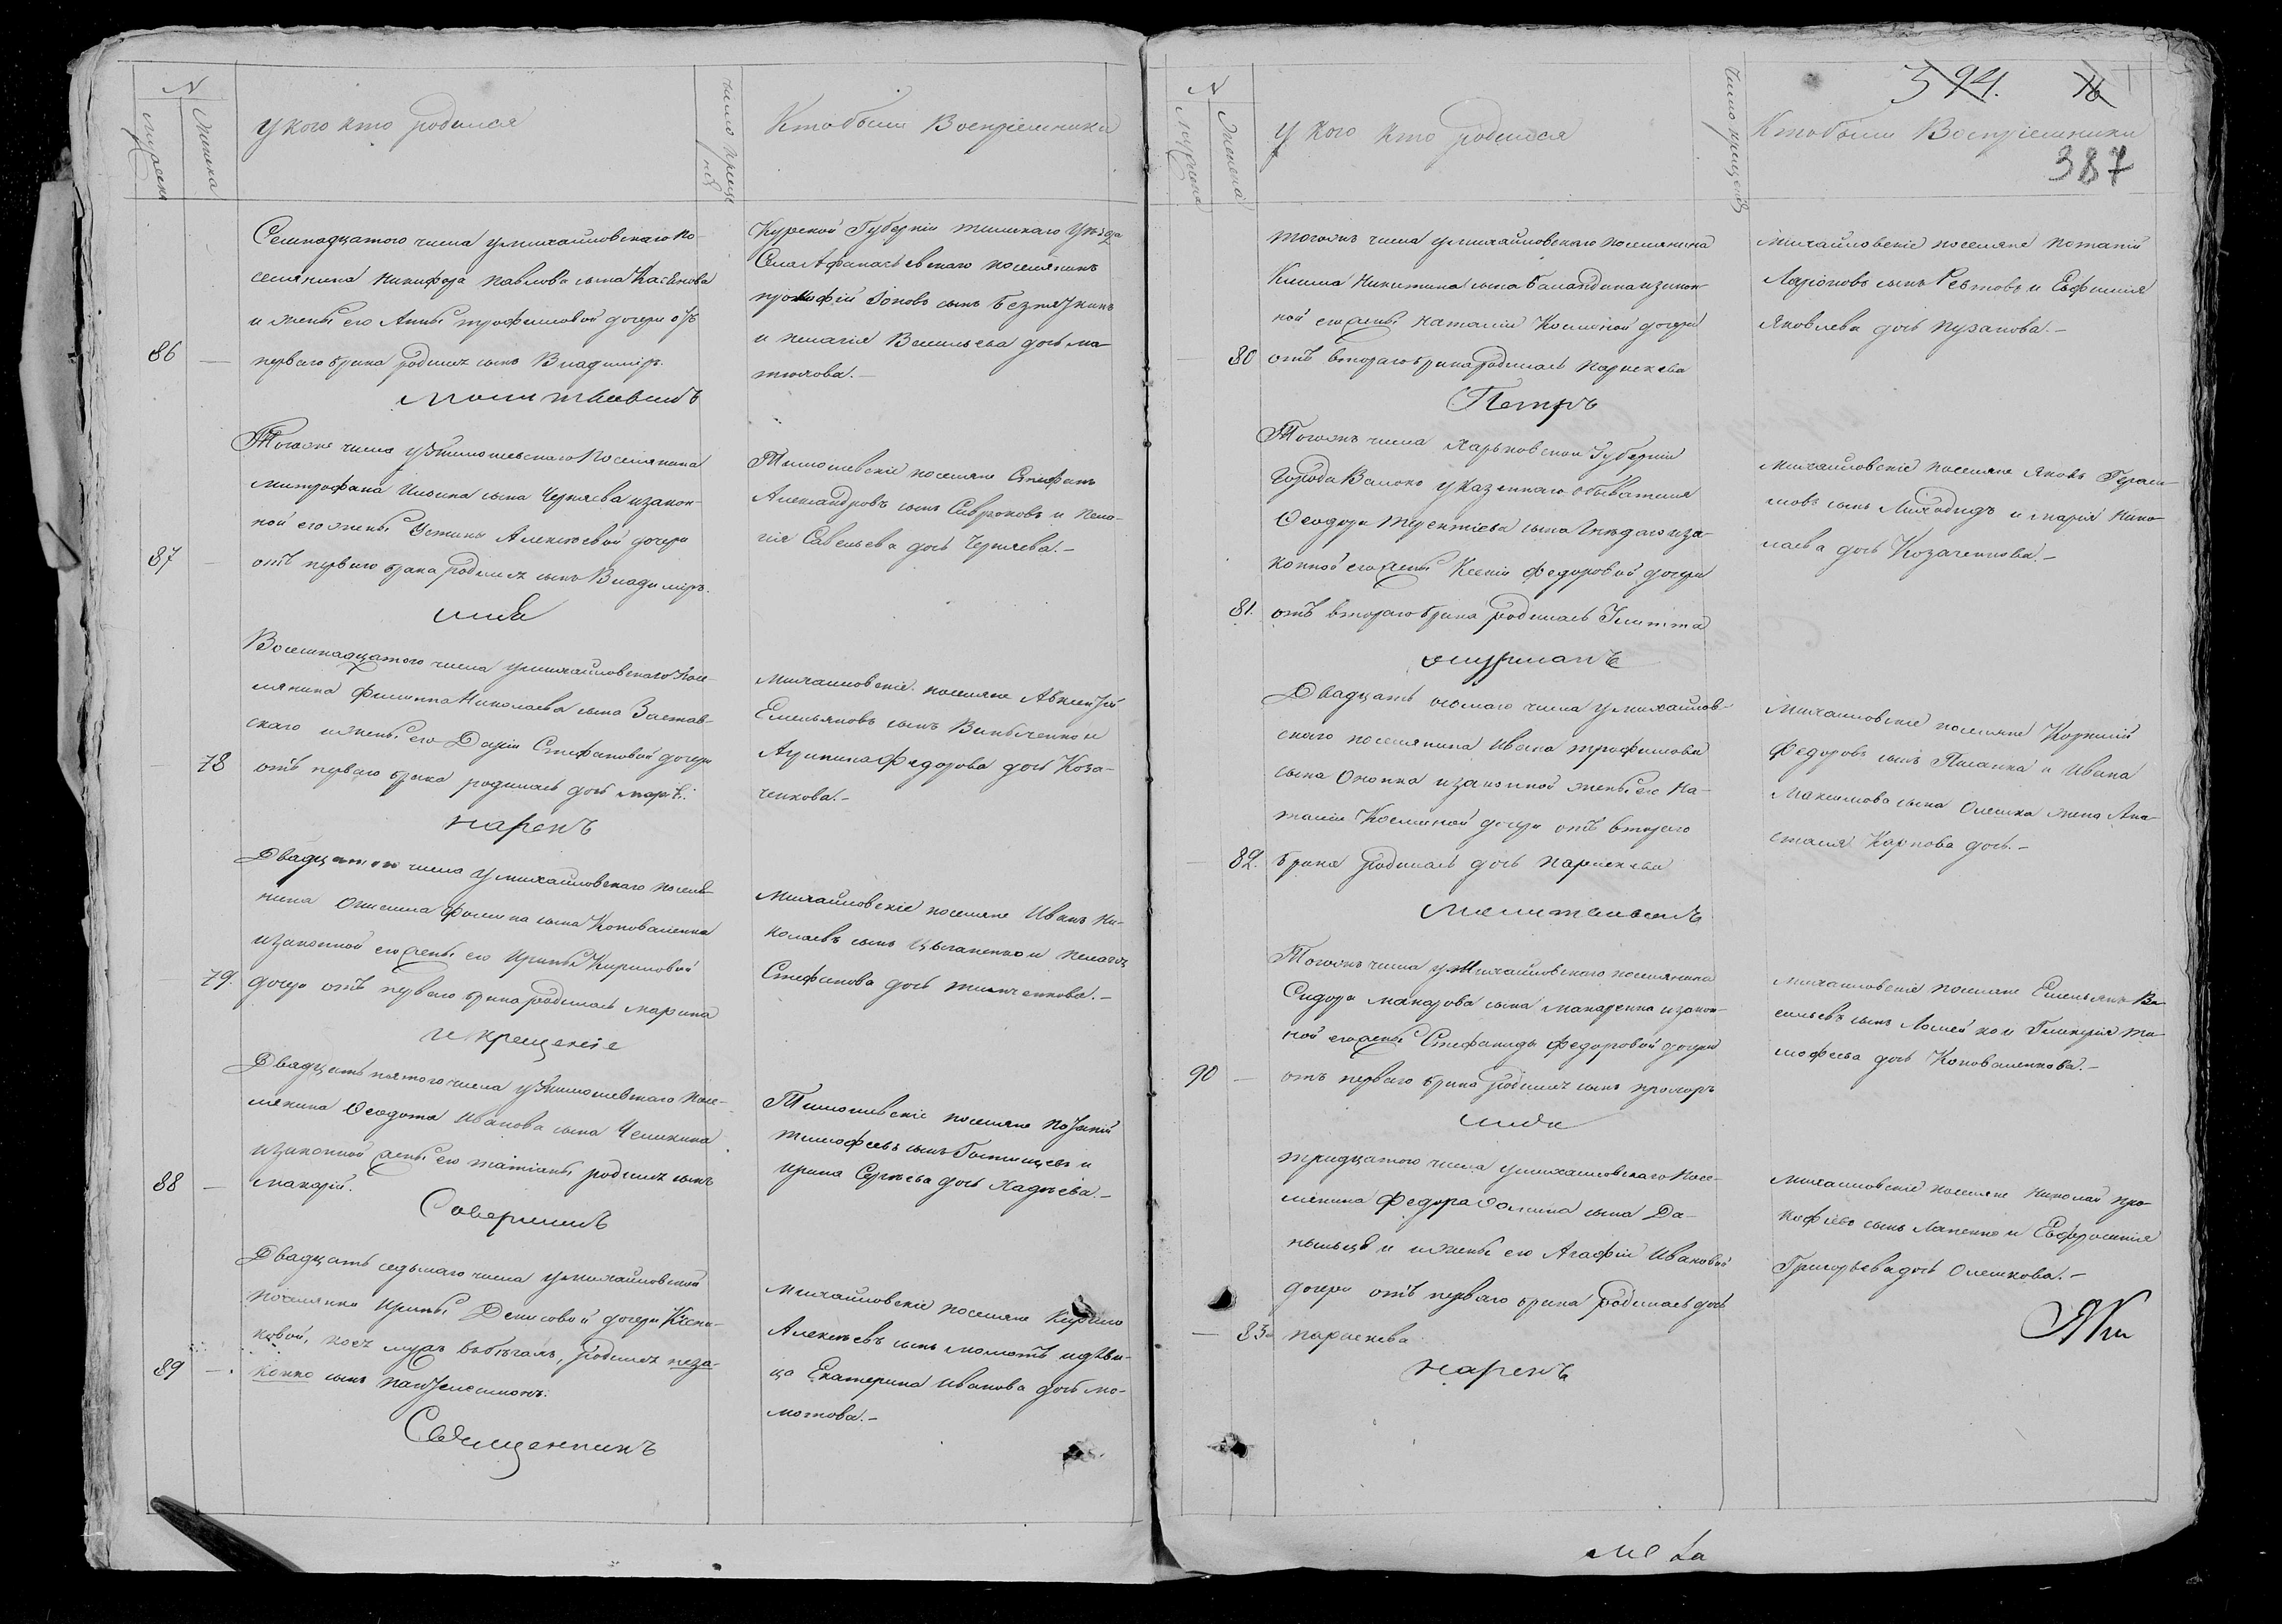 N
Мужеска
Женска
У кого кто родился
Число креще
нія
Кто были Воспріемники
Семнадцатого числа у михайловскаго по-
селянина Никифора Павлова сына Касьянова
и жены его Анны трофимовой дочери отъ
86 — перваго брака родился сынъ Владиміръ.
Молитвовалъ
Курской Губерніи тимскаго Уѣзда
Села Афанасьевскаго поселянинъ
прокофій Іоновъ сынъ
и пелагія Васильева дочь ма-
тюхова. —
Тогоже числа у тимошевскаго поселянина
митрофана Ильина сына Черняева и закон-
ной его жены Устины Алексѣевой дочери
87 — отъ перваго брака родился сынъ Владиміръ.
имя
Тимошевскіе поселяне Стефанъ
Александровъ сынъ Сафроновъ и пела-
гія Савельева дочь Черняева. —
Восемнадцатого числа у михайловскаго посе-
лянина Филиппа Николаева сына Застав-
скаго и жены его Даріи Стефановой дочери
— 78 отъ перваго брака родилась дочь
нарекъ
Михайловскіе поселяне Авксентій
Емельяновъ сынъ и
Агрипина Федорова дочь Коза-
ченкова. —
Двадцатого числа у михайловскаго поселя-
нина Онисима Фомина сына Коноваленка
и законной его жены его Ирины Кириловой
79. дочери отъ перваго брака родилась марина
и крещеніе
Михайловскіе поселяне Иванъ Ни-
колаевъ сынъ Цыганенко и пелагея
Стефанова дочь —
Двадцать пятого числа у тимошевскаго посе-
лянина Ѳеодота Иванова сына Чемикина
и законной жены его татіаны родился сынъ
88 — макарій.
Совершилъ
Тимошевскіе поселяне потапій
тимофеевъ сынъ Гостищевъ и
ирина Сергѣева дочь Хадѣева. —
Двадцать седьмаго числа у михайловской
поселянки Ирины Денисовой дочери
ковой, коея мужъ въ бѣгахъ, родился неза-
89 — конно сынъ пантелеимонъ.
Священникъ
Михайловскіе поселяне Кирило
Алексѣевъ сынъ момотъ и дѣви-
ца Екатерина Иванова дочь мо-
мотова. —
594. 76
387
N
Мужеска
Женска
У кого кто родился
Число крещенія
Кто были Воспріемники
тогожъ числа у михайловскаго поселянина
Никитина сына Баландина и закон-
ной его жены Наталіи Косминой дочери
80 отъ втораго брака родилась параскева
Петръ
Михайловскіе поселяне потапій
Ларіоновъ сынъ Ревтовъ и Евфимія
Яковлева дочь пузанова. —
Тогожъ числа Харьковской Губерніи
города Валокъ у казеннаго обывателя
Ѳеодора Терентіева сына Гнѣдаго и за-
конной его жены Ксеніи Федоровой дочери
81. отъ втораго брака родилась Улитта
Михайловскіе поселяне Яковъ Гераси-
мовъ сынъ и марія Нико-
лаева дочь Козаченкова. —
Двадцать осьмаго числа у михайлов-
скаго поселянина Ивана трофимова
сына и законной жены его На-
таліи Косминой дочери отъ втораго
— 82. брака родилась дочь параскева
Молитвовалъ
Михайловскіе поселяне Корнилій
Федоровъ сынъ и Ивана
Максимова сына Олешка жена Ана-
стасія Карпова дочь. —
Тогожъ числа у Михайловскаго поселянина
Сидора макарова сына макаренка и закон-
ной его жены Стефаниды Федоровой дочери
90 — отъ перваго брака родился сынъ прохоръ
имя
Михайловскіе поселяне Емельянъ Ва-
сильевъ сынъ и Гликерія ти-
мофеева дочь Коноваленкова. —
тридцатого числа у михайловскаго посе-
лянина Федора Фомина сына Да-
и жены его Агафіи Ивановой
дочери отъ перваго брака родилась дочь
— 83 параскева
нарекъ
Михайловскіе поселяне Николай про-
кофіевъ сынъ Лапенко и Евфросинія
Григорьева дочь Олешкова. —